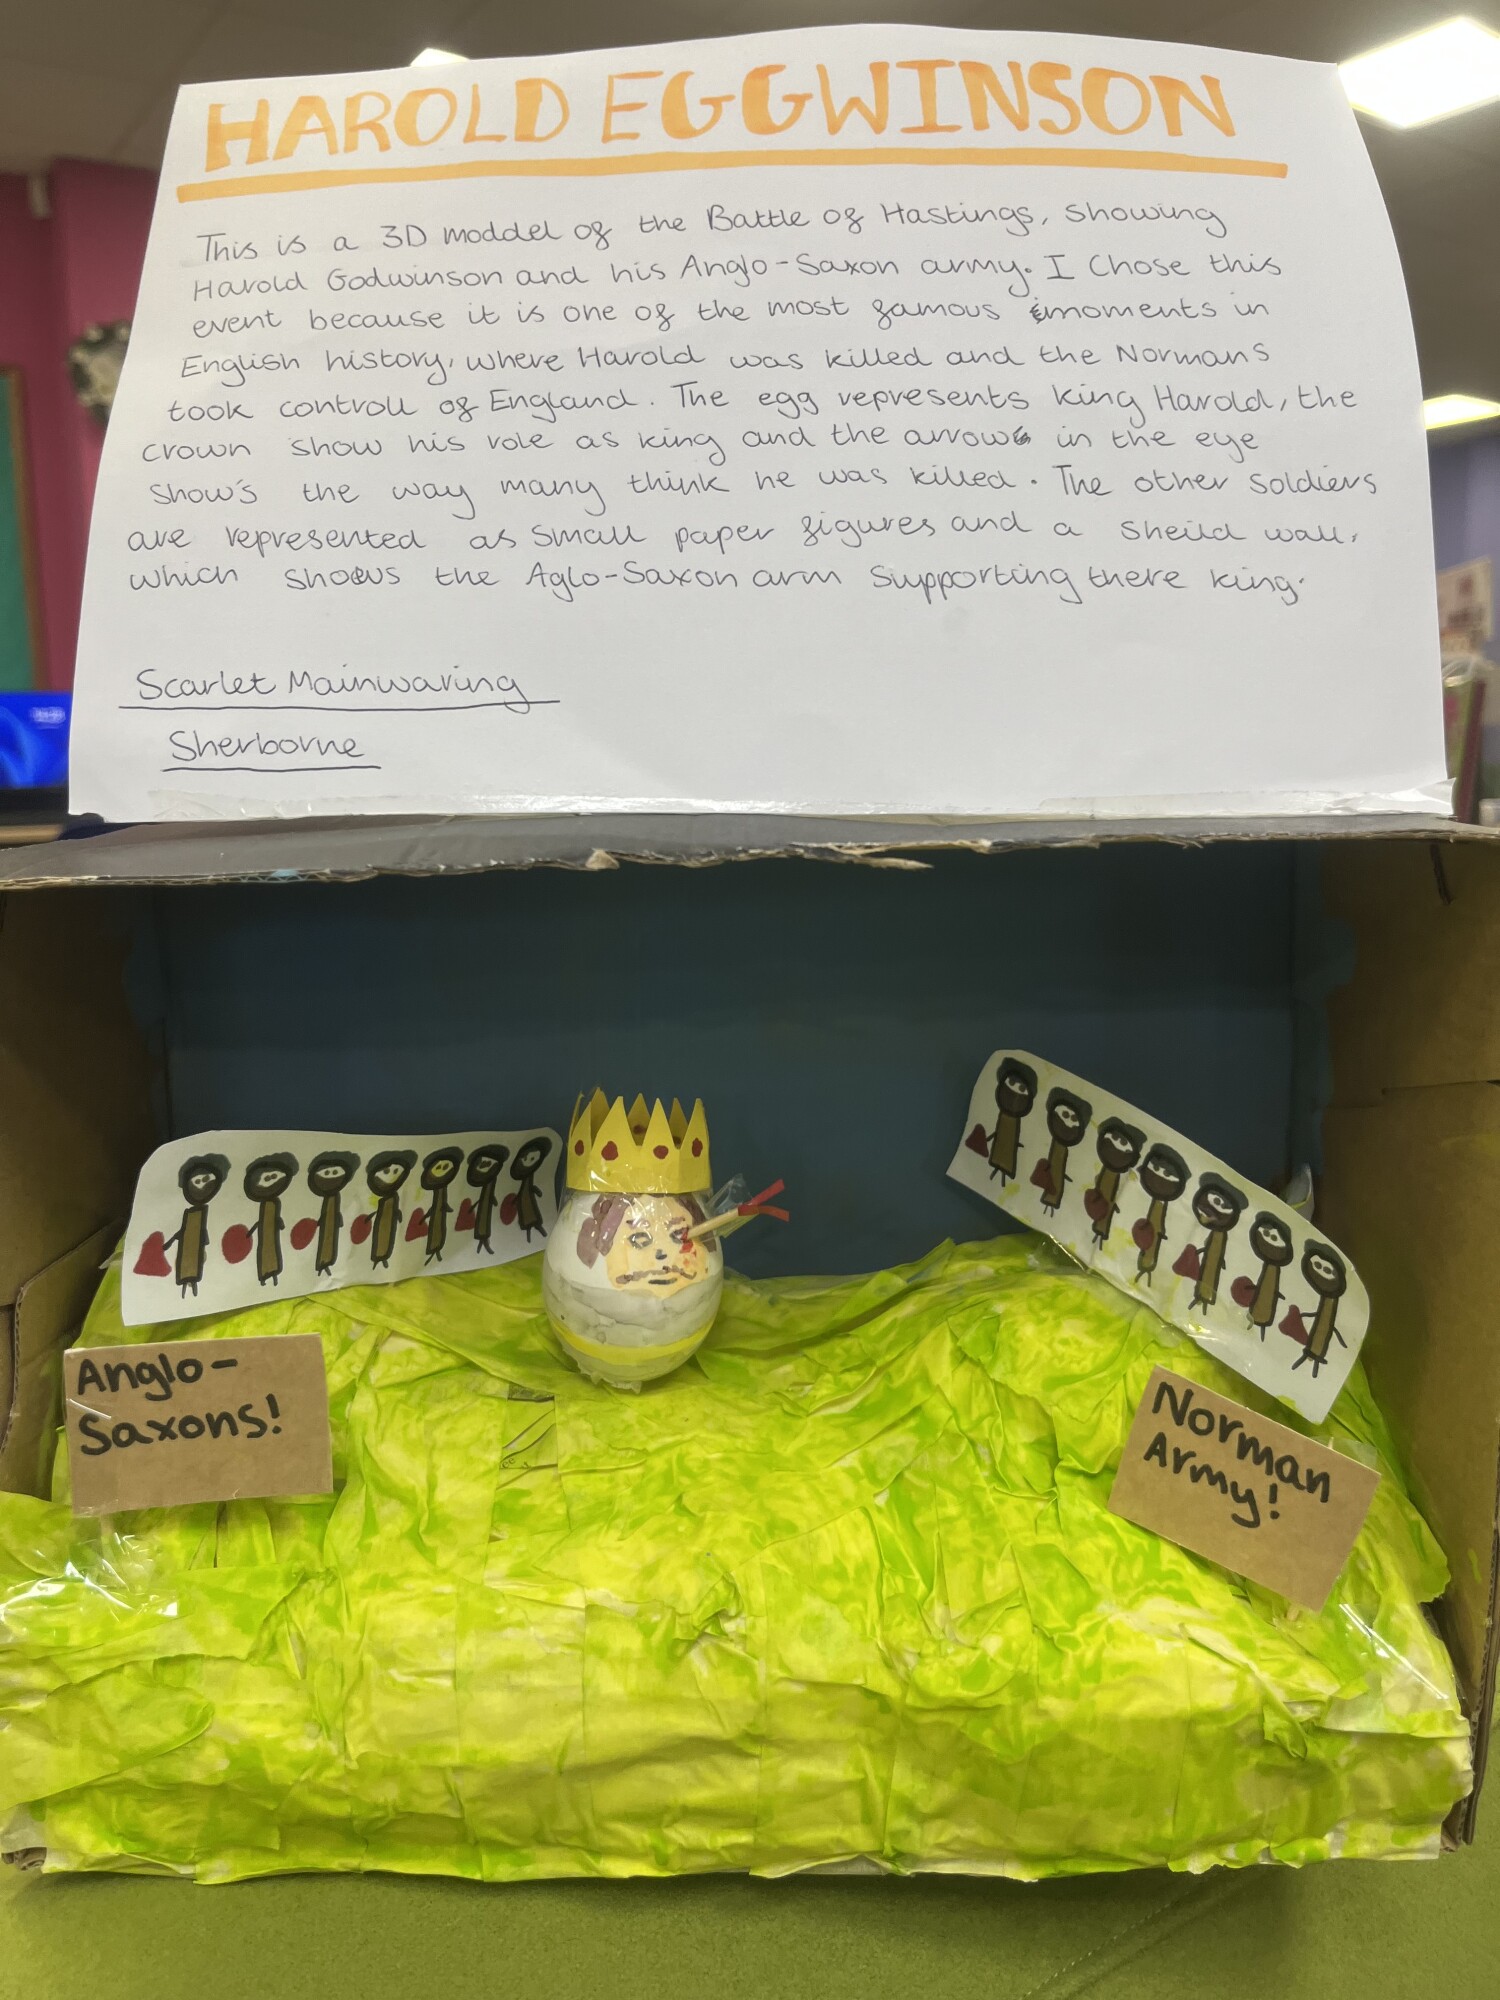 HAROLD EGGWINSON
This is a 3D moddel of the Battle of Hastings, showing
Harold Godwinson and his Anglo-Saxon army. I Chose this
event because it is one of the most famous moments in
English history, where Harold was killed and the Normans
took controll of England. The egg represents king Harold, the
crown show his role as king and the arrow in the eye
show's the way many think he was killed. The other soldiers
are represented as small paper figures and a sheild wall,
which shows the Aglo-Saxon arm supporting there king.
Scarlet Mainwaring
Sherborne
Anglo-
Saxons!
Norman
Army!